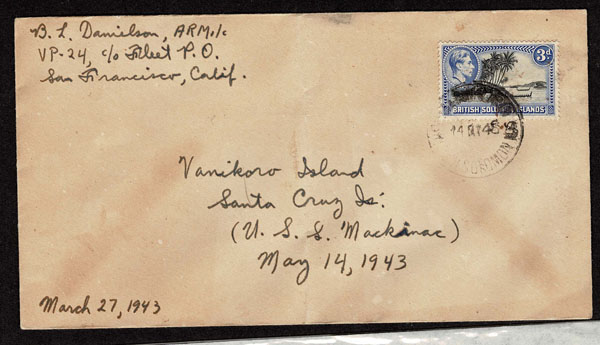 B. L. Danielson, ARM1/c
VP-24, c/o Fleet P. O.
San Francisco, Calif.
3d
BRITISH SOLOMON ISLANDS
SOLOMON
Vanikoro Island
Santa Cruz Is:
(U. S. S. Mackinac)
May 14, 1943
March 27, 1943